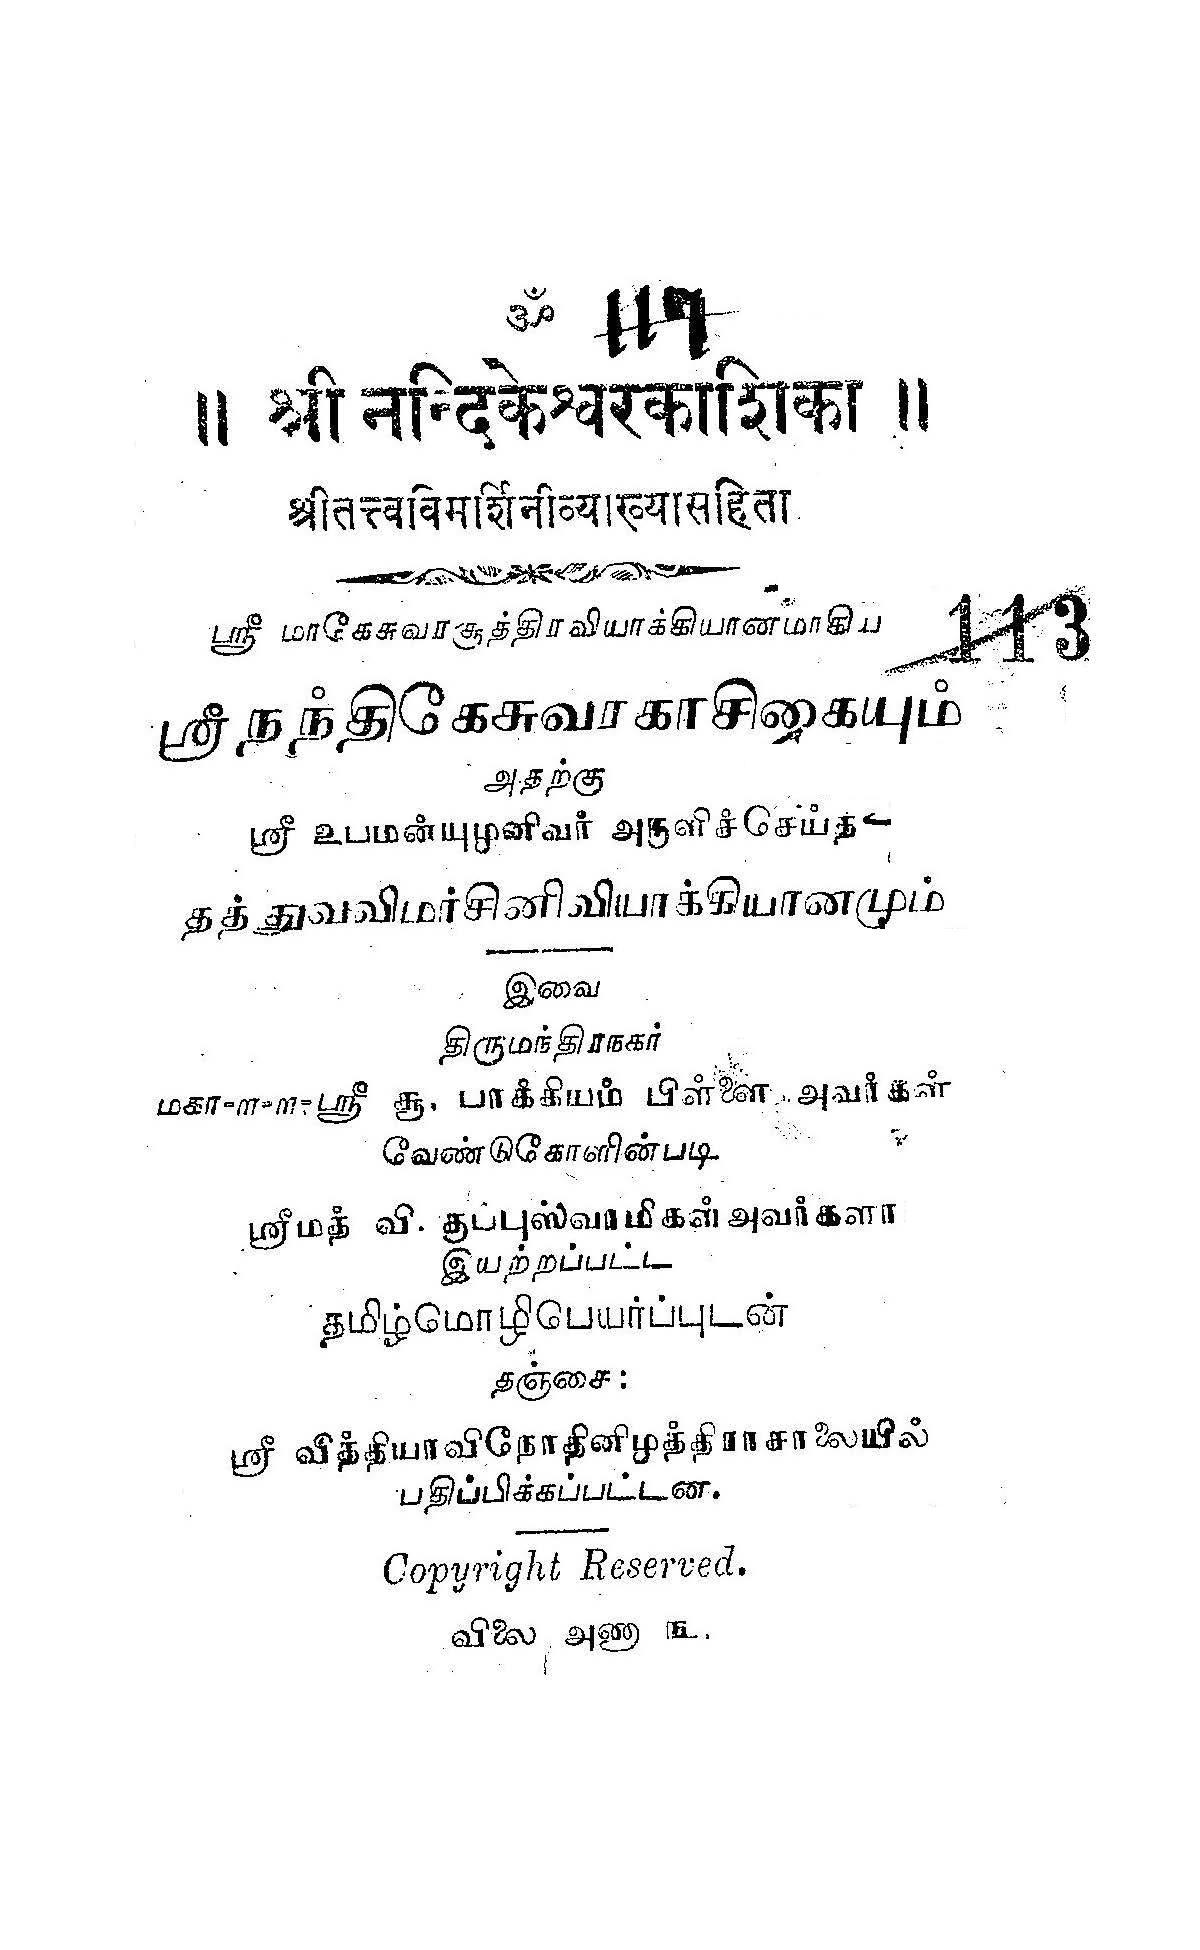 ॐ 117
॥ श्री नन्दिकेश्वरकाशिका ॥
श्रीतत्त्वविमर्शिनीव्याख्यासहिता
ஸ்ரீ மாகேசுவரசூத்திரவியாக்கியானமாகிய 113
ஸ்ரீ நந்திகேசுவரகாசிகையும்
அதற்கு
ஸ்ரீ உபமன்யுமுனிவர் அருளிச்செய்த
தத்துவவிமர்சினிவியாக்கியானமும்
இவை
திருமந்திரநகர்
மகா-ா-ா-ஸ்ரீ சூ. பாக்கியம் பிள்ளை அவர்கள்
வேண்டுகோளின்படி
ஸ்ரீமத் வி. குப்புஸ்வாமிகள் அவர்களா
இயற்றப்பட்ட
தமிழ்மொழிபெயர்ப்புடன்
தஞ்சை:
ஸ்ரீ வித்தியாவிநோதினிமுத்திராசாலையில்
பதிப்பிக்கப்பட்டன.
Copyright Reserved.
விலை அணா ௩.